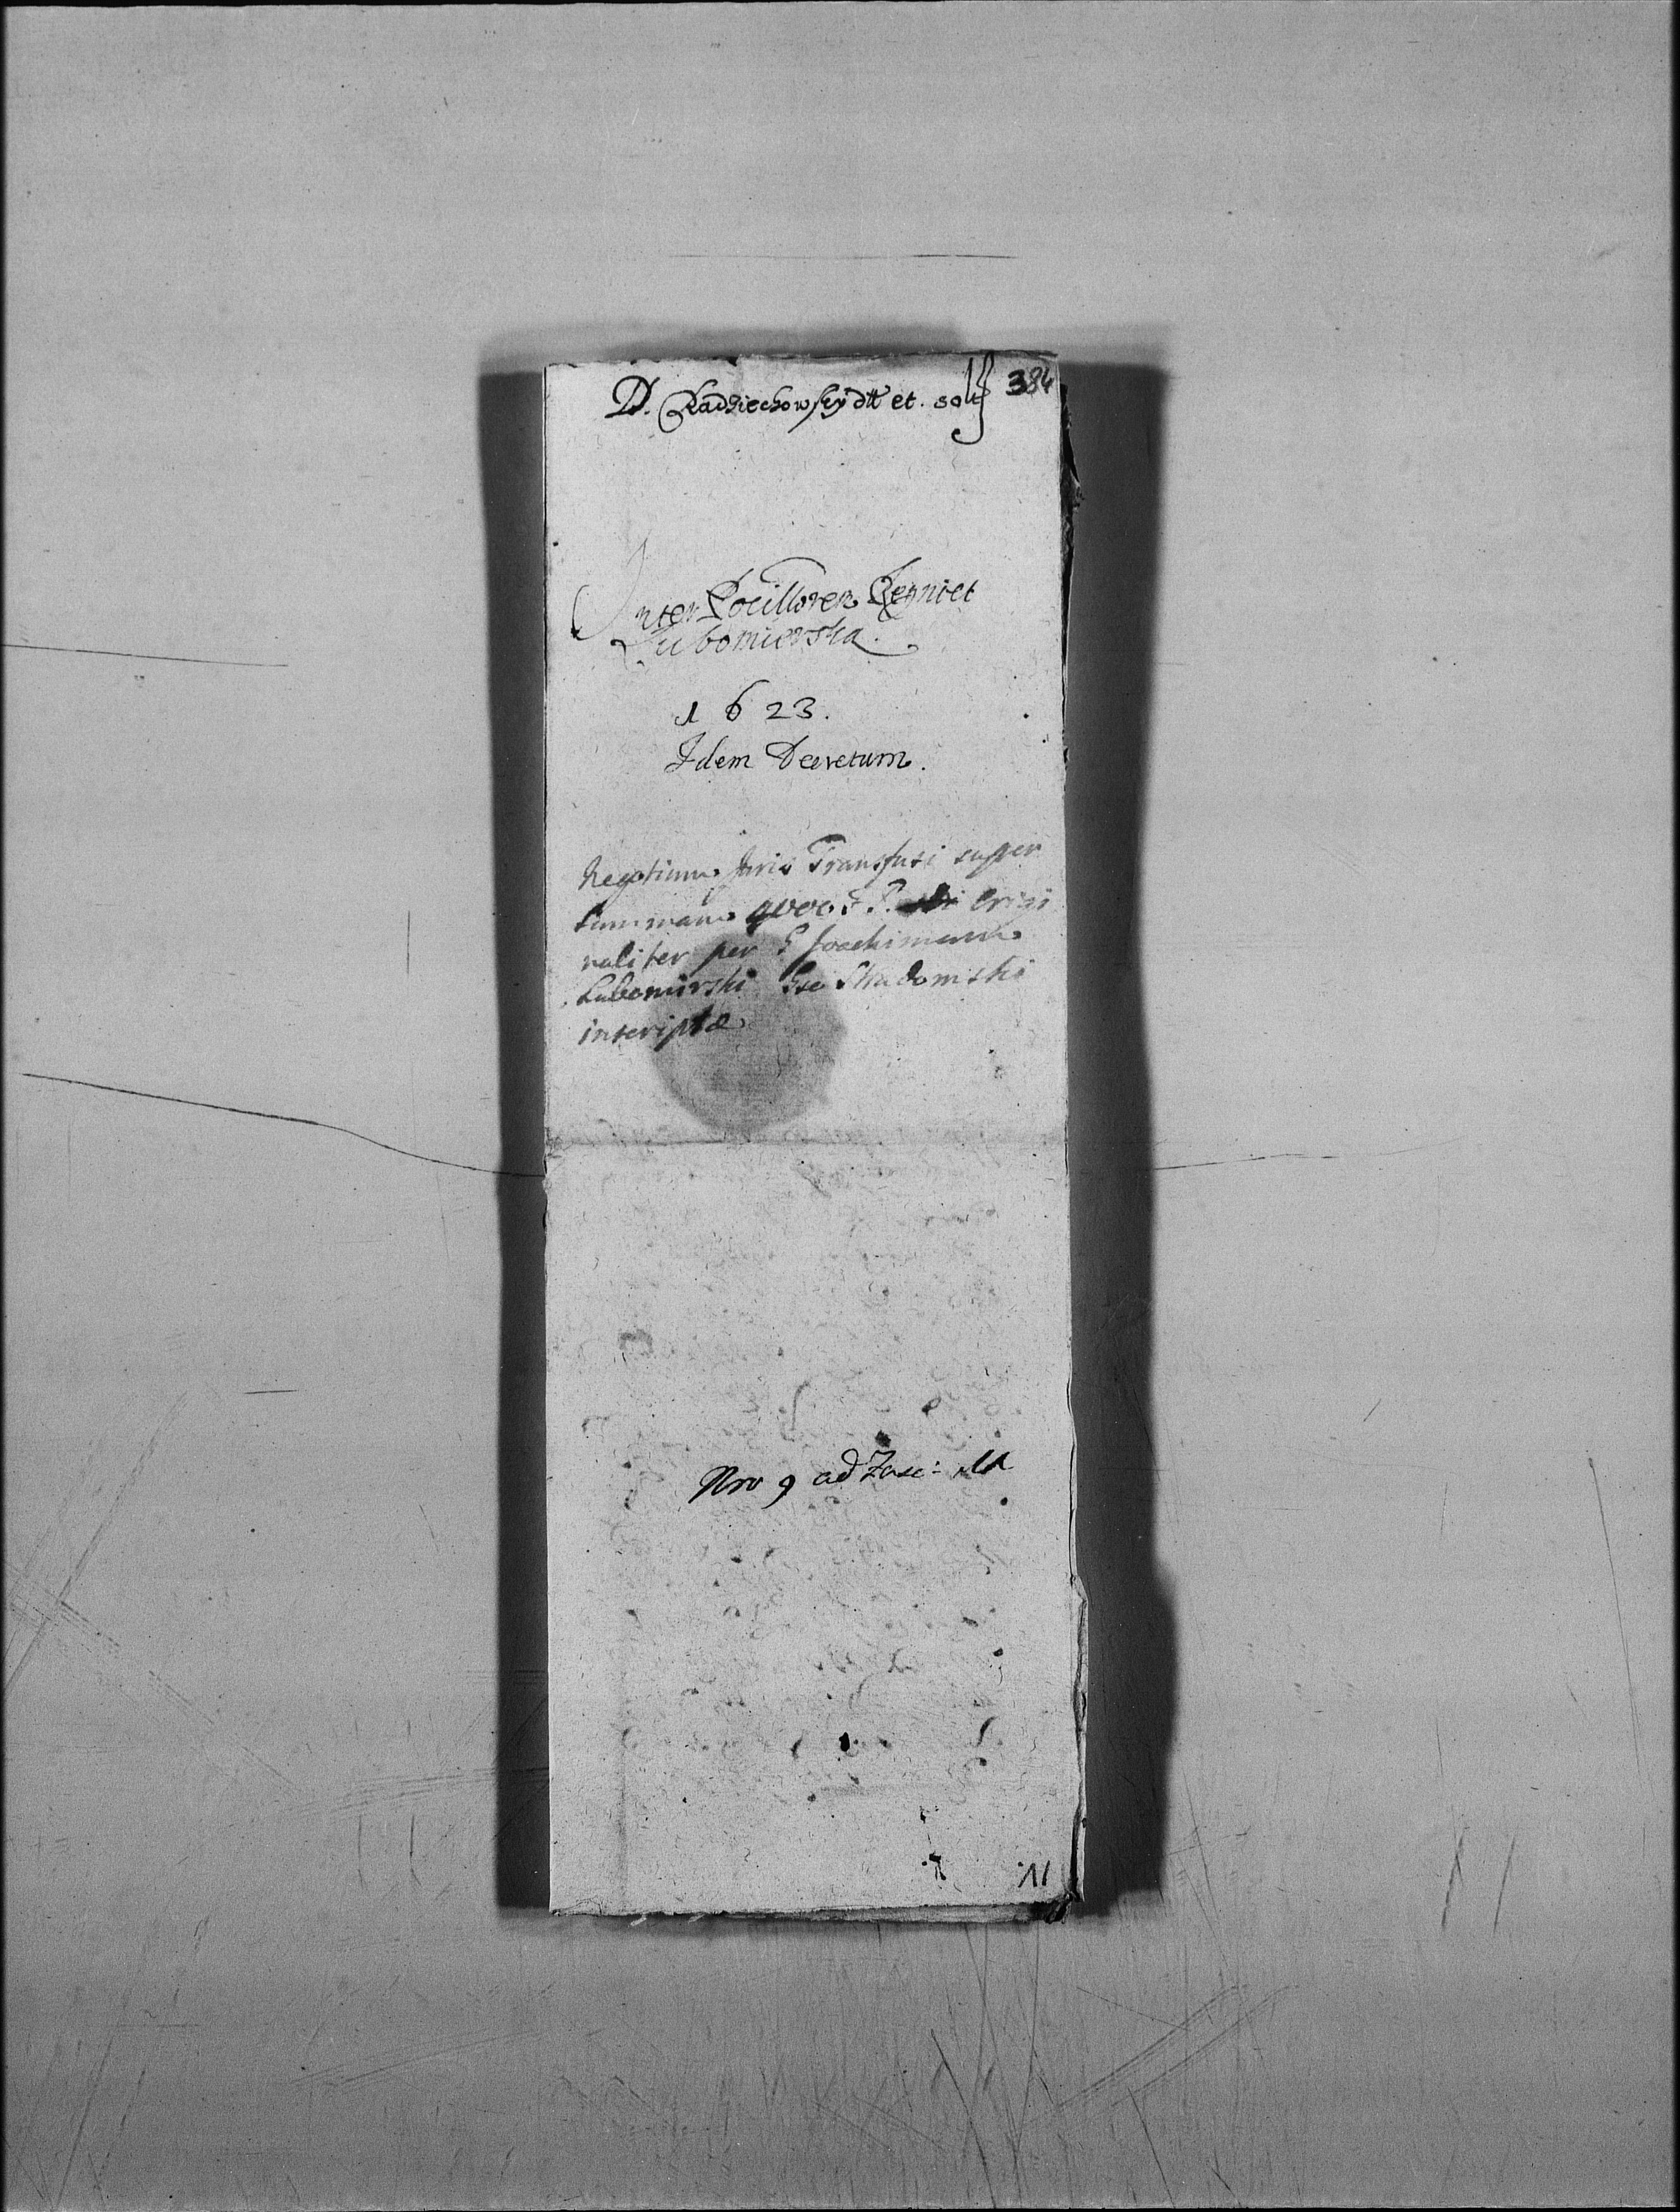 D. Radziechowsky dtt et. solt
384
Inter Pocillorem Regni et
Lubomierska.
1623.
Idem Decretum.
Negotium Juris Transfusi super
summam 9000. F. P. origi
naliter per G Joachimum
Lubomirski Gso Stradomski
inscriptæ
Nro 9 ad Fasc: M